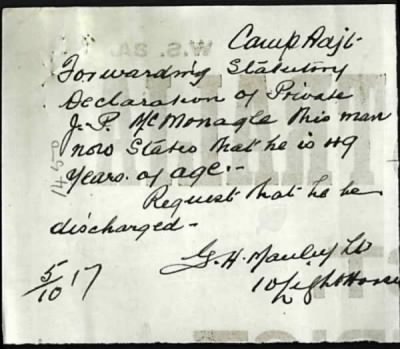 W.S. 2A.
Camp Adjt
Forwarding Statutory
Declaration of Private
J. P. McMonagle this man
now States that he is 49
years. of age.-
Request that he be
discharged -
G. H. Manley Lt
5/10/17
10 Light Horse